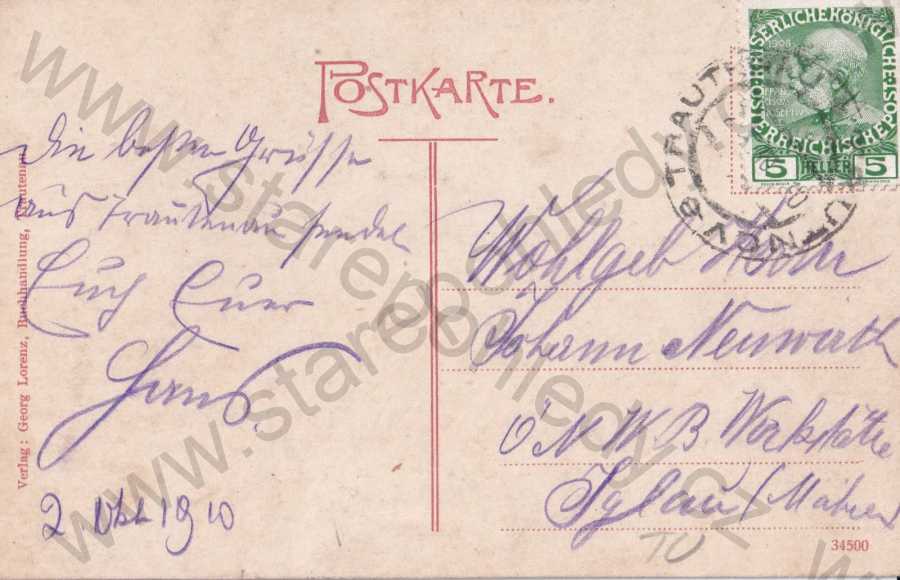 POSTKARTE.
Die besten Grüsse
aus Trautenau sendet
Euch Euer
Hans
2 Okt 1910
Wohlgeb Herr
Johann Neuwirth
Ö N W B Werkstätte
Iglau / Mähren
KAISERLICHE KÖNIGLICHE
ÖSTERREICHISCHE POST
1908
5 HELLER 5
TRAUTENAU
TRUTNOV
Verlag: Georg Lorenz, Buchhandlung, Trautenau
34500
TU
www.starepohledy.cz
www.starepohledy.cz